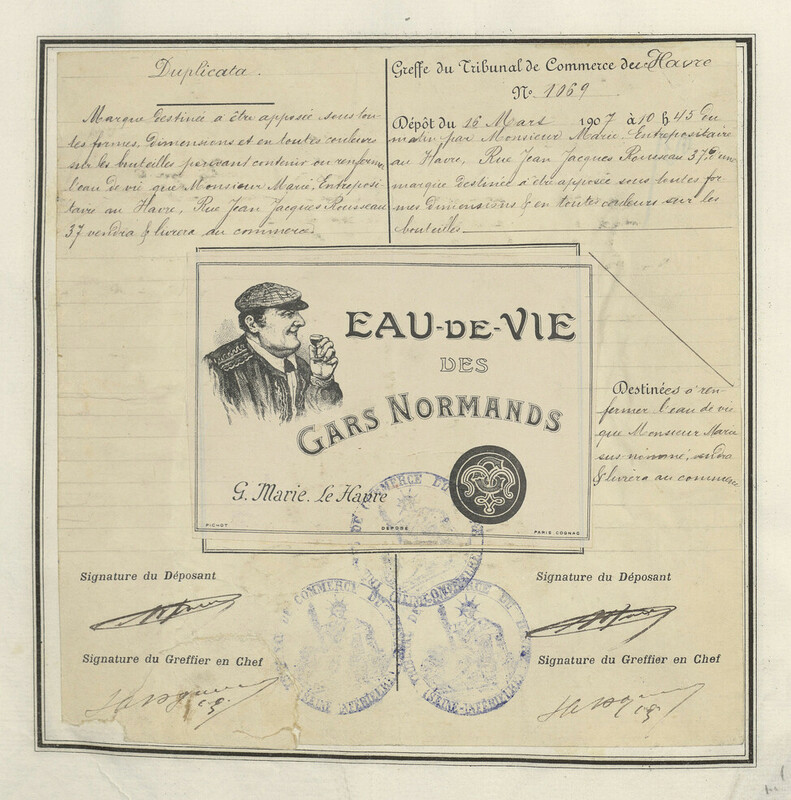 Duplicata.
Marque destinée a être apposée sous tou-
tes formes, dimensions et en toutes couleurs
sur les bouteilles pouvant contenir ou renfermer
l'eau de vie que Monsieur Marie, Entreposi-
taire au Havre, Rue Jean Jacques Rousseau
37 vendra & livrera au commerce.
Greffe du Tribunal de Commerce du Havre
No 1069
Dépôt du 16 Mars 1907 à 10 h 45 du
matin, par Monsieur Marie Entrepositaire
au Havre, Rue Jean Jacques Rousseau 37, d'une
marque destinée à être apposée sous toutes for-
mes dimensions & en toutes couleurs sur les
bouteilles
Destinées à ren-
fermer l'eau de vie
que Monsieur Marie
sus-nommé, vendra
& livrera au commerce
EAU-DE-VIE
DES
GARS NORMANDS
G. Marie. Le Havre
PICHOT
DÉPOSÉ
PARIS COGNAC
Signature du Déposant
Signature du Greffier en Chef
Signature du Déposant
Signature du Greffier en Chef
DE COMMERCE DU
TRIBUNAL DE COMMERCE DU
(SEINE-INFÉRIEURE)
COMMERCE DU
(SEINE-INFÉRIEURE)